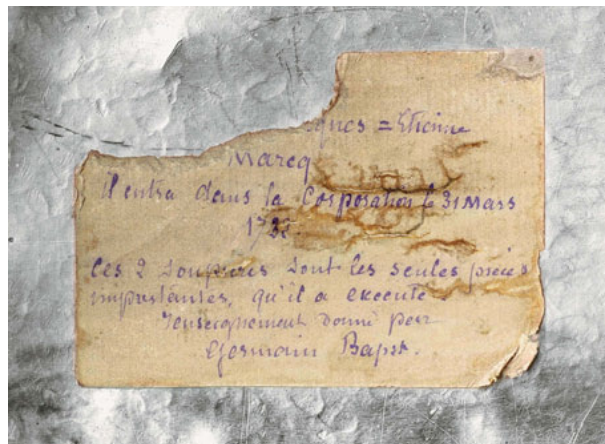 =Etienne
Marcq
Il entra dans la Corporation le 31 Mars
Ces 2 soupieres sont les seules pièces
importantes, qu'il a execute
renseignement donné par
Germain Bapst.